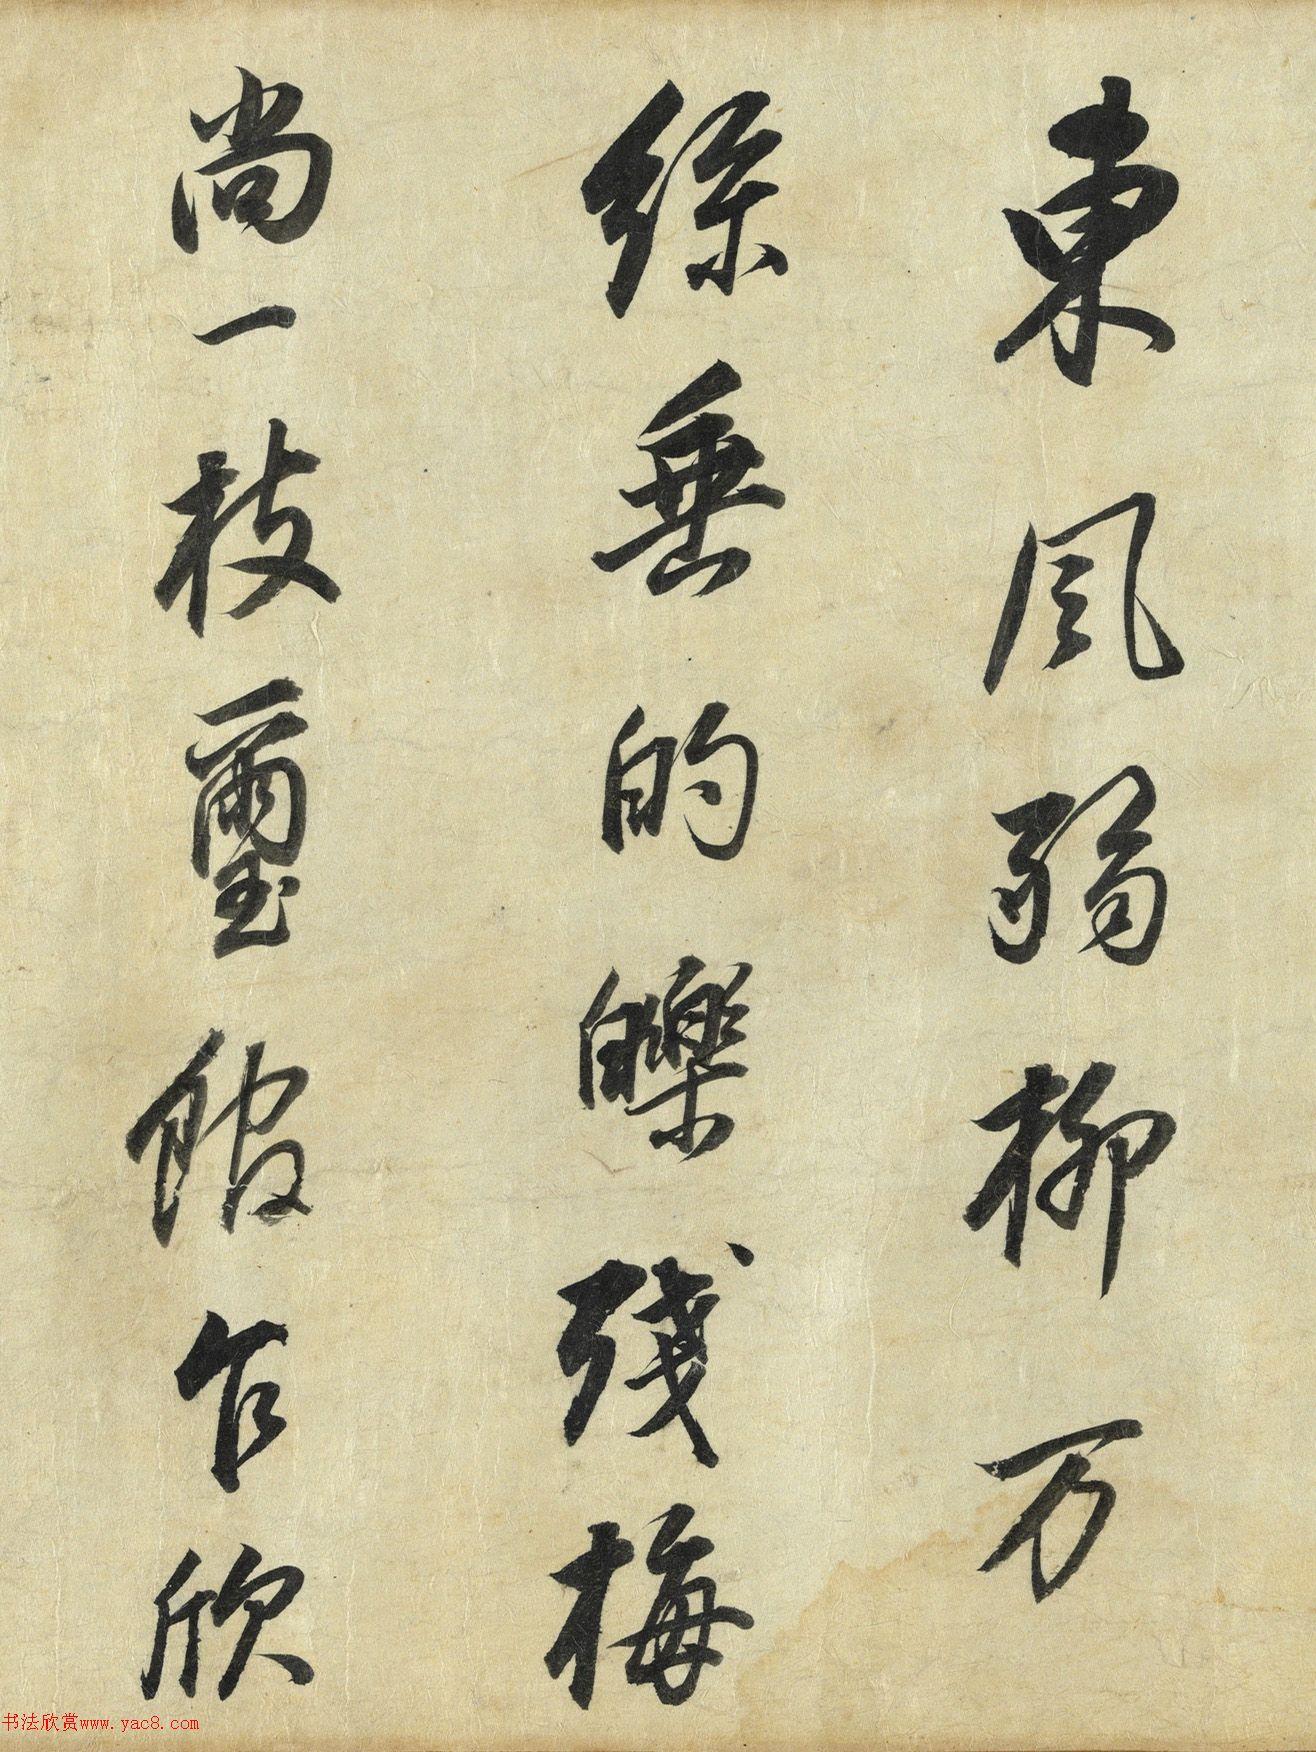 東風弱柳万
絲垂的皪殘梅
尚一枝璽館乍欣
书法欣赏www.yac8.com